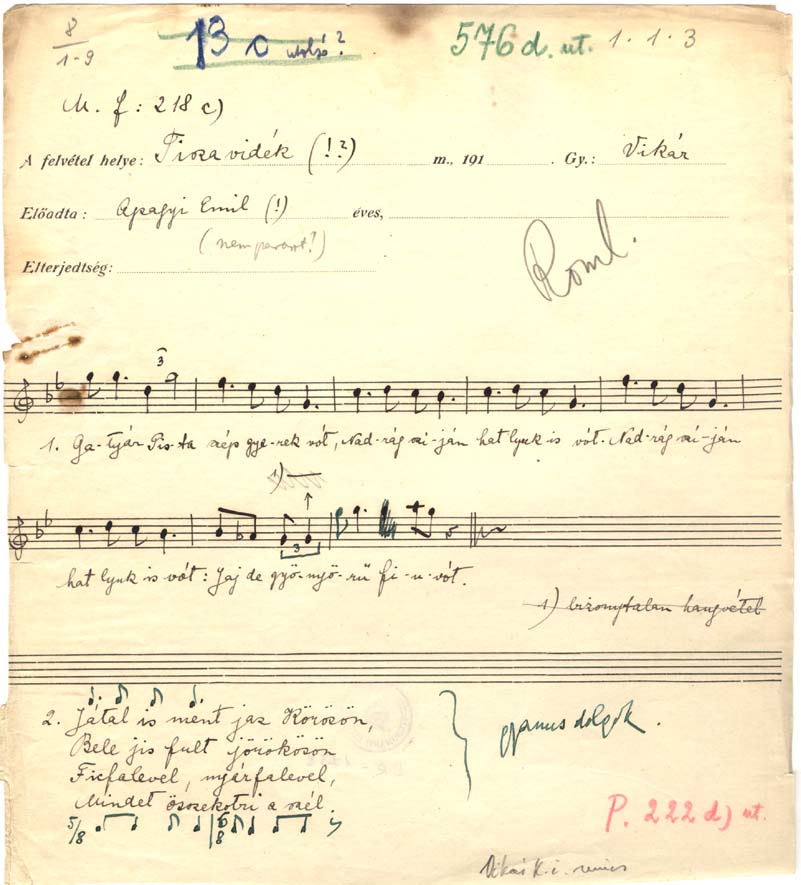 8/1-9
13 c utolsó?
576 d. ut. 1.1.3
M. f: 218 c)
A felvétel helye: Tisza vidék (!?) m., 191 . Gy.: Vikár
Előadta: Apagyi Emil (!) éves,
(nem paraszt?)
Elterjedtség:
Roml.
3
1. Ga-tyár Pis-ta szép gye-rek vót, Nad-rág szi-ján hat lyuk is vót. Nad-rág szi-ján
1)
3
hat lyuk is vót: Jaj de gyö-nyö-rű fi-u vót.
1) bizonytalan hangvétel
2. Játal is ment jaz Körösön,
Bele jis fult jörökösön
Ficfalevel, nyárfalevel,
Mindet összekotri a szél.
gyanus dolgok.
5/8 6/8
P. 222 d) ut.
Vikár K. i. nincs